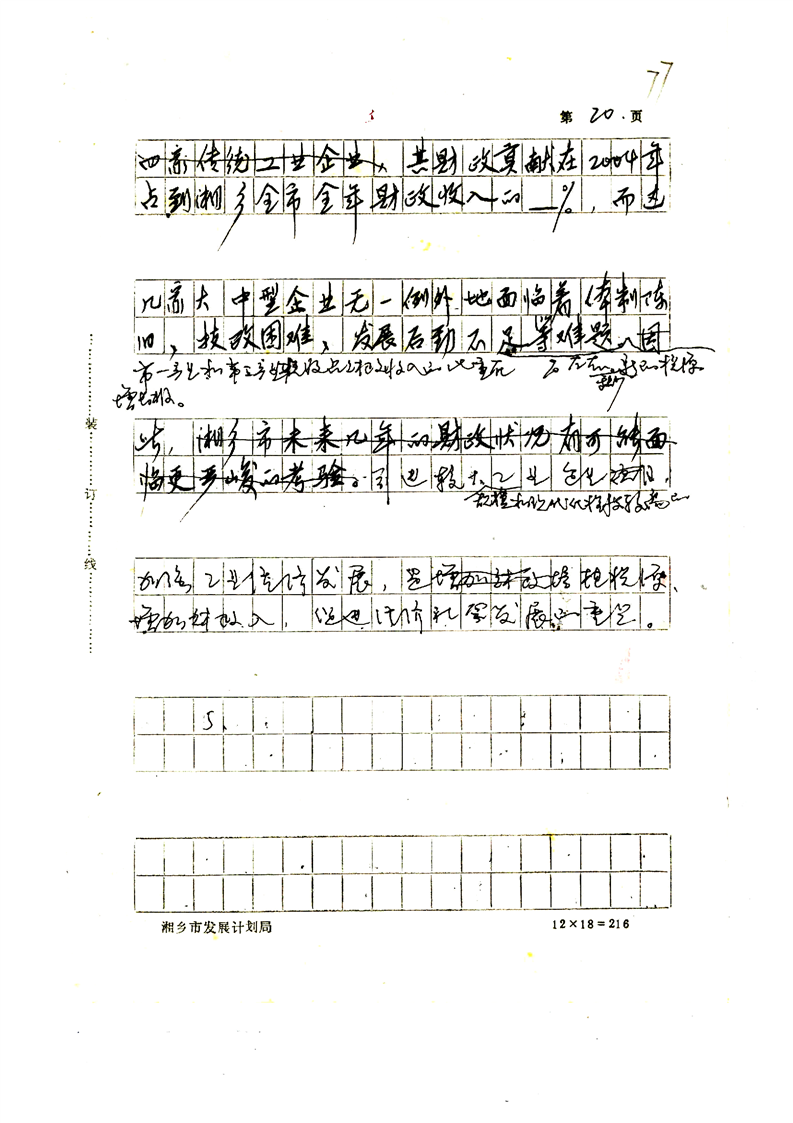 77
第 20 页
四家传统工业企业、其财政贡献在2004年
占到湘乡全市全年财政收入的__%,而这
几家大中型企业无一例外地面临着体制陈
旧,技改困难,发展后劲不足等难题。因
市一产业和第三产业税收占工商税收入的比重
增加收。
此,湘乡市未来几年的财政状况有可能面
临更严峻的考验。引进较大工业企业项目,
加快工业经济发展,是增加财政培植税源、
增加财政收入,促进经济社会发展的重点。
5.
装
订
线
湘乡市发展计划局
12×18=216